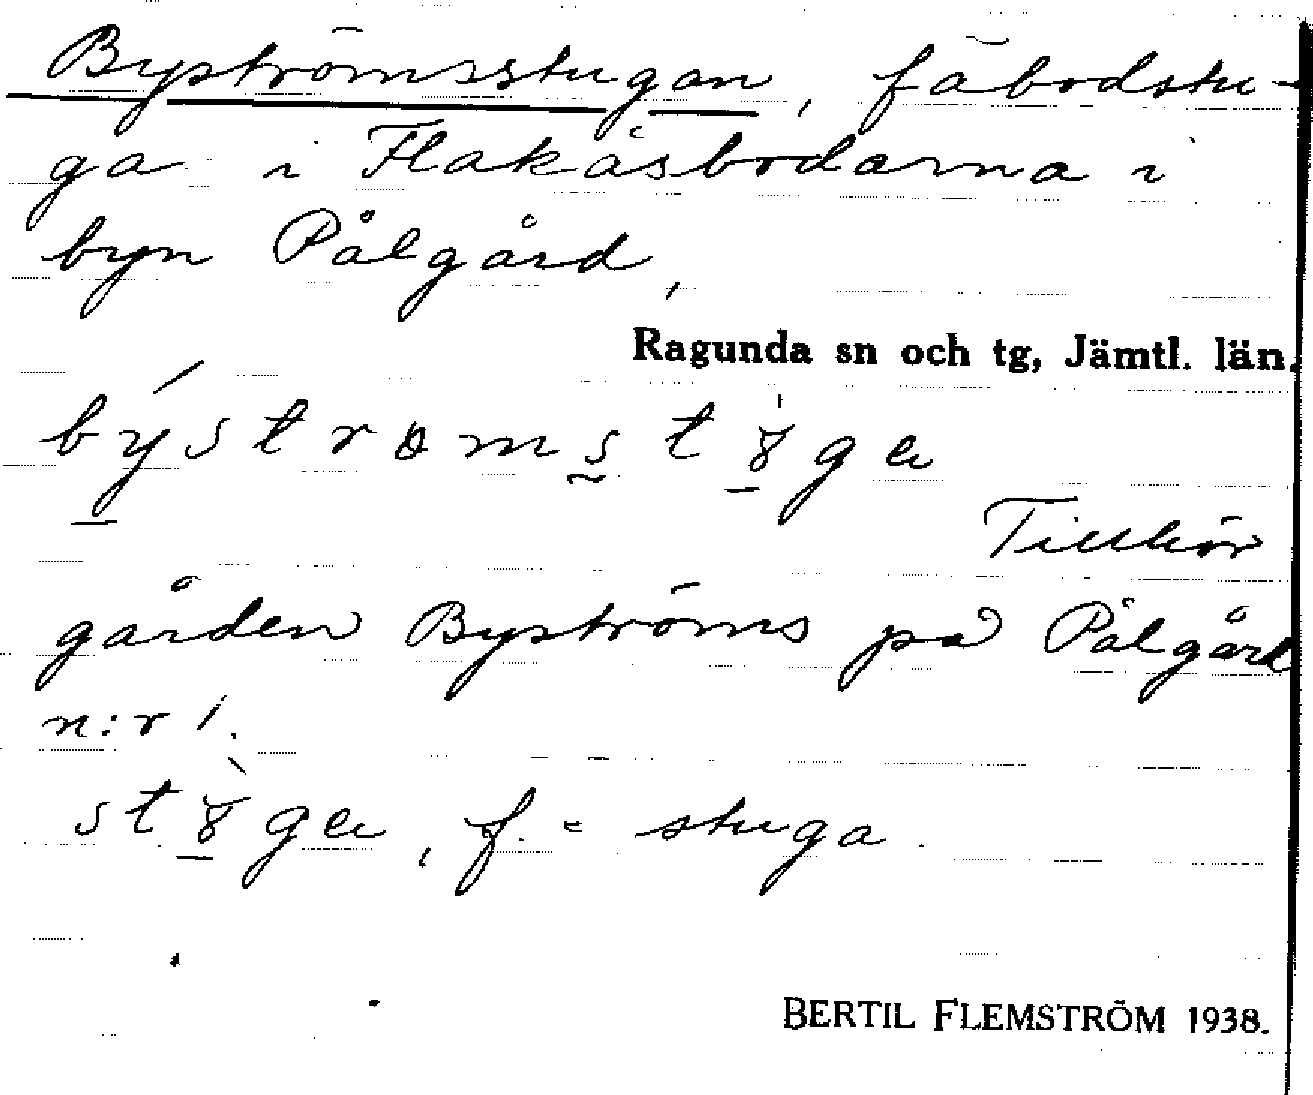 Byströmsstugan, fäbodstu-
ga i Flakåsbodarna i
byn Pålgård,
Ragunda sn och tg, Jämtl. län.
Tillhör
gården Byströms på Pålgård
n:r 1.
f. = stuga
BERTIL FLEMSTRÖM 1938.